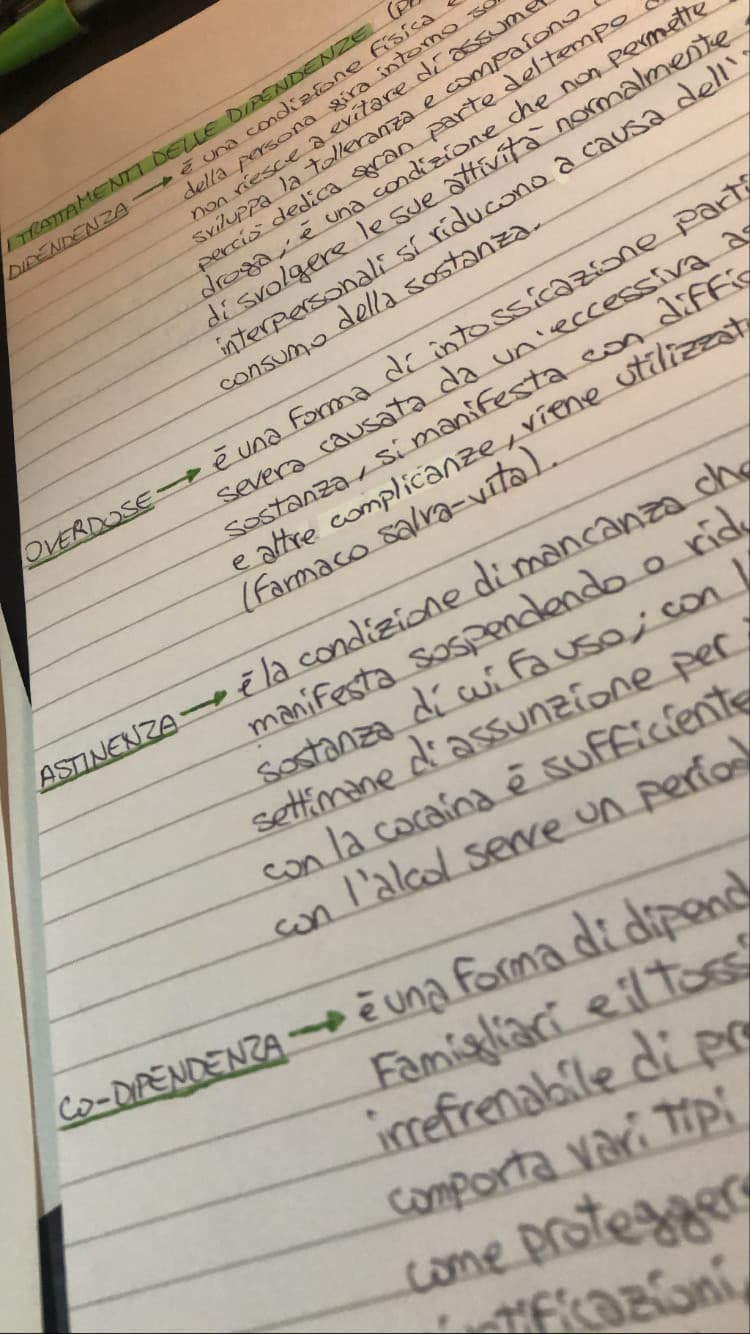 I TRATTAMENTI DELLE DIPENDENZE
DIPENDENZA → è una condizione fisica
della persona gira intorno
non riesce a evitare di assumer
sviluppa la tolleranza e compaiono
perciò dedica gran parte del tempo
droga, è una condizione che non permette
di svolgere le sue attività normalmente
interpersonali si riducono a causa dell'
consumo della sostanza.
OVERDOSE → è una forma di intossicazione parti
severa causata da un'eccessiva as
sostanza, si manifesta con diffic
e altre complicanze, viene utilizzat
(farmaco salva-vita).
ASTINENZA → è la condizione di mancanza che
manifesta sospendendo o ridu
sostanza di cui fa uso; con l
settimane di assunzione per
con la cocaina è sufficiente
con l'alcol serve un period
CO-DIPENDENZA → è una forma di dipend
famigliari e il tossi
irrefrenabile di pro
comporta vari tipi
come protegger